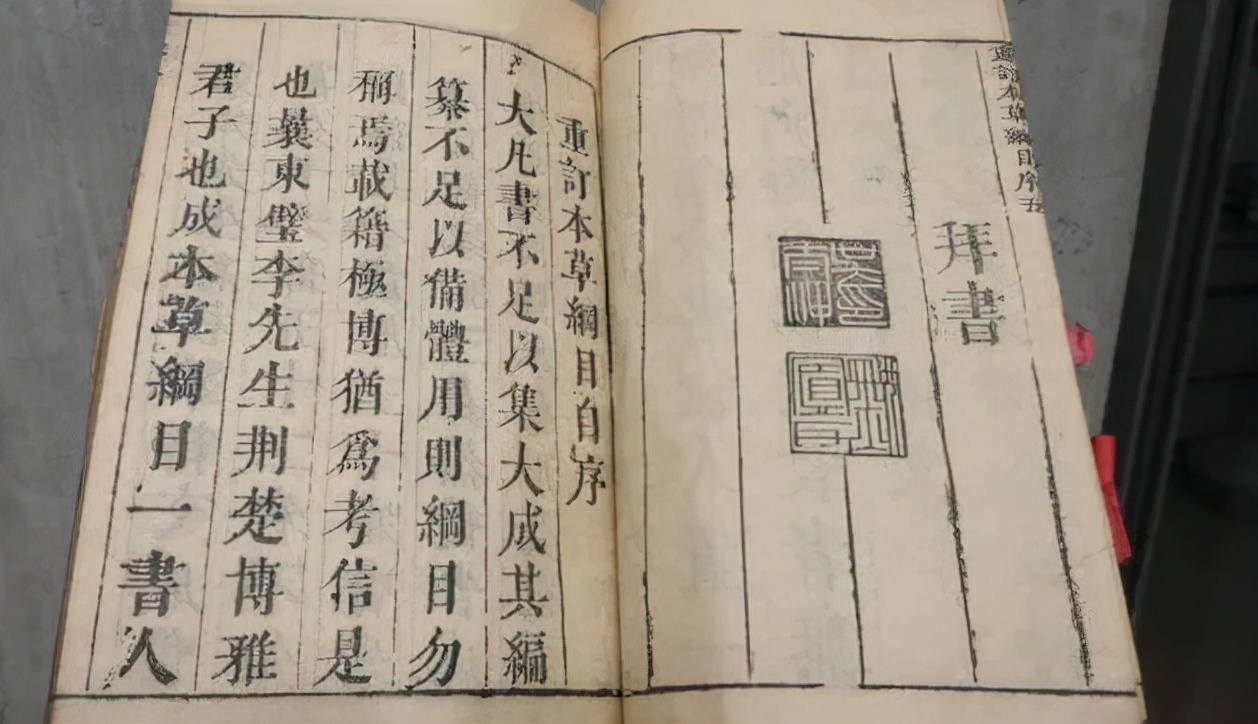 重訂本草綱目序五
拜書
重訂本草綱目自序
大凡書不足以集大成其編
纂不足以備體用則綱目勿
稱焉載籍極博猶爲考信是
也曩東璧李先生荆楚博雅
君子也成本草綱目一書人